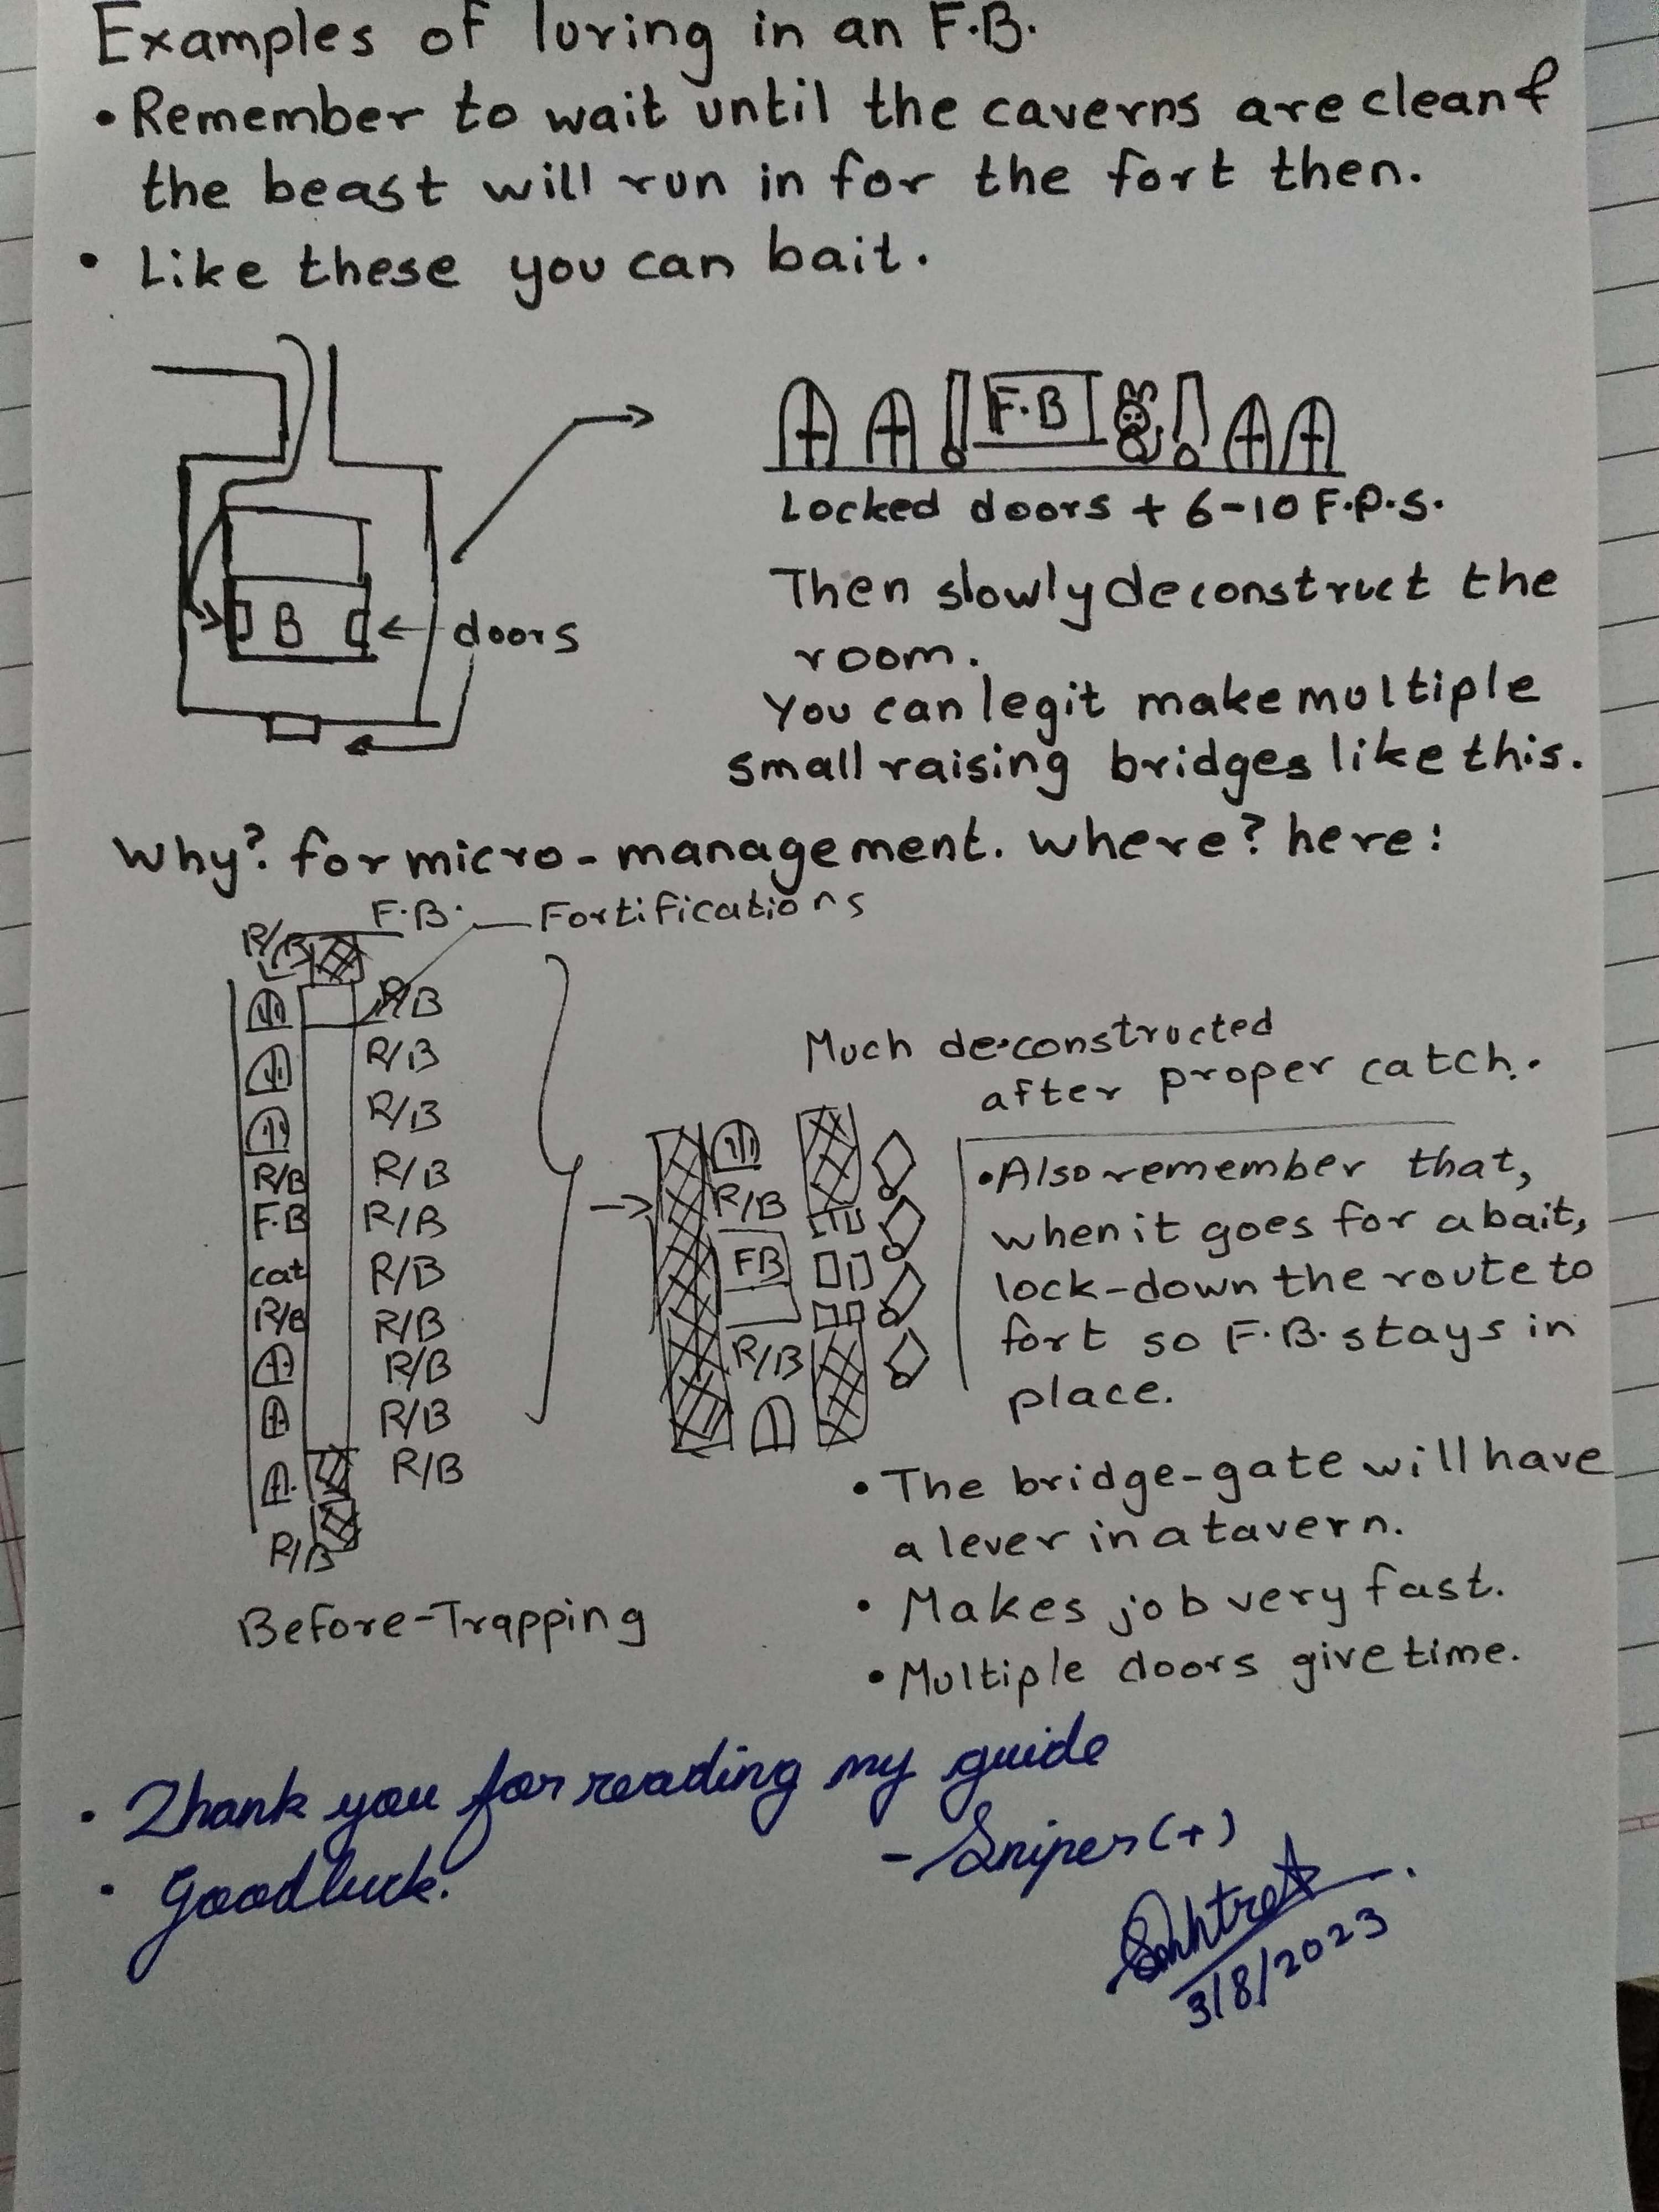 Examples of luring in an F.B.
• Remember to wait until the caverns are clean &
the beast will run in for the fort then.
• Like these you can bait.
F.B
Locked doors + 6-10 F.P.S.
B
doors
Then slowly deconstruct the
room.
You can legit make multiple
small raising bridges like this.
Why? for micro-management. where? here:
F.B. Fortifications
R/B
R/B
R/B
R/B
R/B
R/B
R/B
R/B
R/B
R/B
R/B
R/B
F.B
cat
R/B
R/B
Before-Trapping
Much de-constructed
after proper catch.
R/B
FB
R/B
• Also remember that,
when it goes for a bait,
lock-down the route to
fort so F.B. stays in
place.
• The bridge-gate will have
a lever in a tavern.
• Makes job very fast.
• Multiple doors give time.
• Thank you for reading my guide
- Sniper (+)
• Goodluck.
3/8/2023